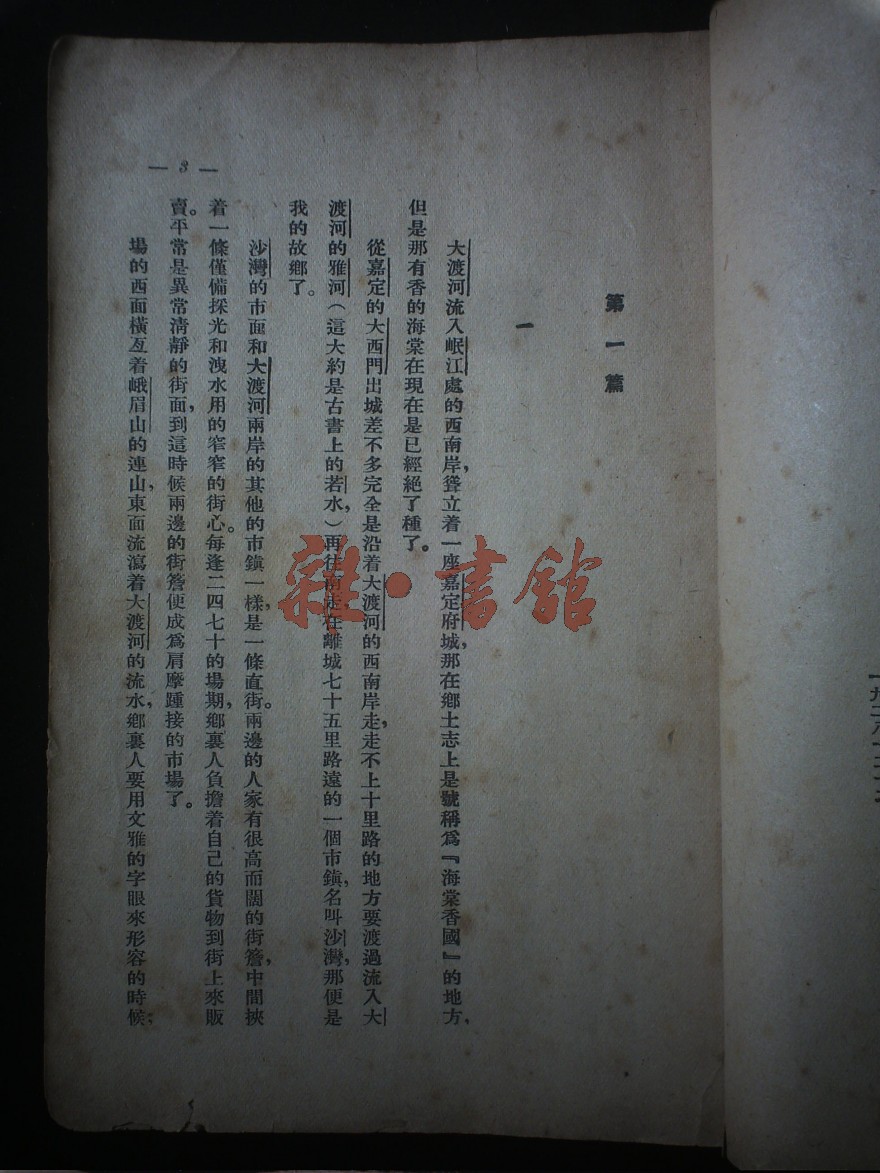 第一篇
一
大渡河流入岷江處的西南岸，聳立着一座嘉定府城，那在鄉土志上是號稱爲『海棠香國』的地方，
但是那有香的海棠在現在是已經絕了種了。
從嘉定的大西門出城差不多完全是沿着大渡河的西南岸走，走不上十里路的地方要渡過流入大
渡河的雅河（這大約是古書上的若水，）再往南走，在離城七十五里路遠的一個市鎮，名叫沙灣，那便是
我的故鄉了。
沙灣的市面和大渡河兩岸的其他的市鎮一樣，是一條直街。兩邊的人家有很高而闊的街簷，中間挾
着一條僅備採光和洩水用的窄窄的街心。每逢二四七十的場期，鄉裏人負擔着自己的貨物到街上來販
賣。平常是異常清靜的街面，到這時候兩邊的街簷便成爲肩摩踵接的市場了。
場的西面橫亙着峨眉山的連山，東面流瀉着大渡河的流水，鄉裏人要用文雅的字眼來形容的時候，
— 3 —
雜·書館